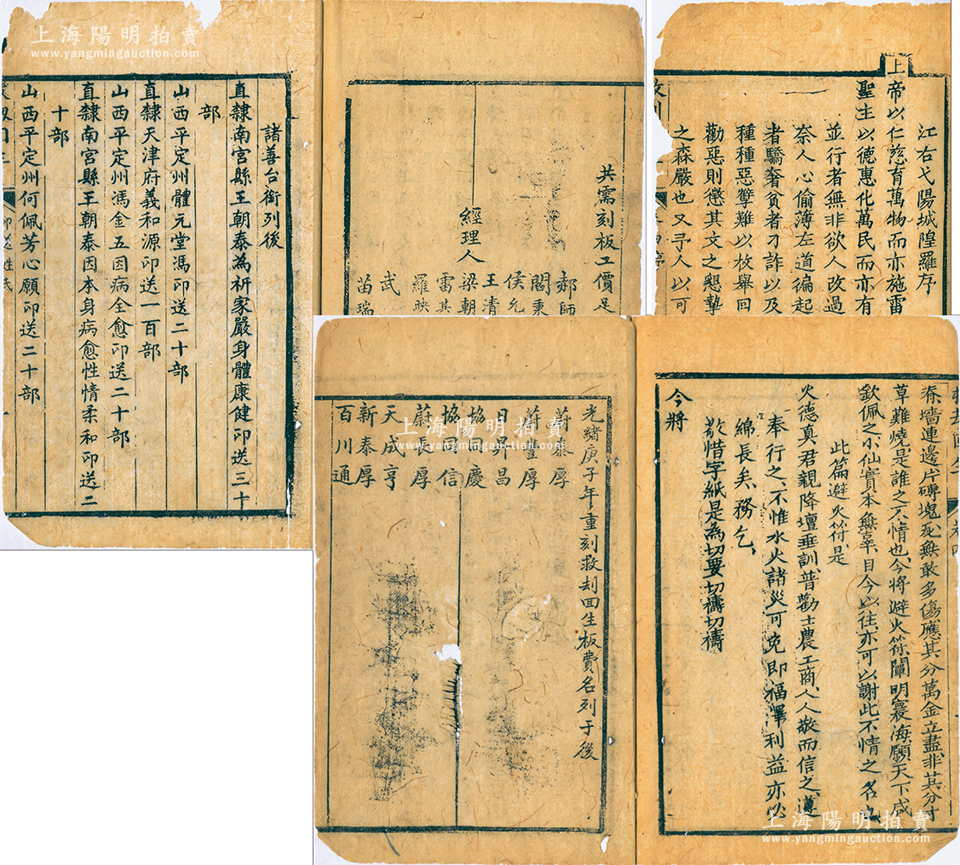 上海陽明拍賣
www.yangmingauction.com
江右弋陽城隍羅序
上帝以仁慈育萬物而亦施雷
聖王以德惠化萬民而亦有
並行者無非欲人改過
奈人心偷薄左道徧起
者驕奢貧者刁詐以及
種種惡孽難以枚舉回
勸惡則懲其文之懇摯
之森嚴也又予人以可
共需刻板工價足
經理人
郝師
閻秉
侯允
王清
梁朝
雷其
羅映
武
苗瑞
諸善台銜列後
直隸南宮縣王朝泰為祈家嚴身體康健印送三十
部
山西平定州體元堂馮印送二十部
直隸天津府義和源印送一百部
山西平定州馮金五因病全愈印送二十部
直隸南宮縣王朝泰因本身病愈性情柔和印送二
十部
山西平定州何佩芳心願印送二十部
上海陽明拍賣
www.yangmingauction.com
上海陽明拍賣
www.yangmingauction.com
墻連邊片磚塊瓦無敢多傷應其分萬金立盡非其分寸
草難燒是誰之不情也今將避火符闡明寰海願天下咸
欽佩之小仙實本無辜目今以往亦可以謝此不情之名也
此篇避火符是
火德真君親降壇垂訓普勸士農工商人人敬而信之遵
奉行之不惟水火諸災可免即福澤利益亦必
綿長矣務乞
敬惜字紙是為切要切禱切禱
今將
光緒庚子年重刻救刼回生板費名列于後
蔚泰厚
蔚豐厚
日昇昌
協同慶
協同信
蔚長厚
天成亨
新泰厚
百川通
上海陽明拍賣
www.yangmingauction.com
上海陽明拍賣
www.yangmingauction.com